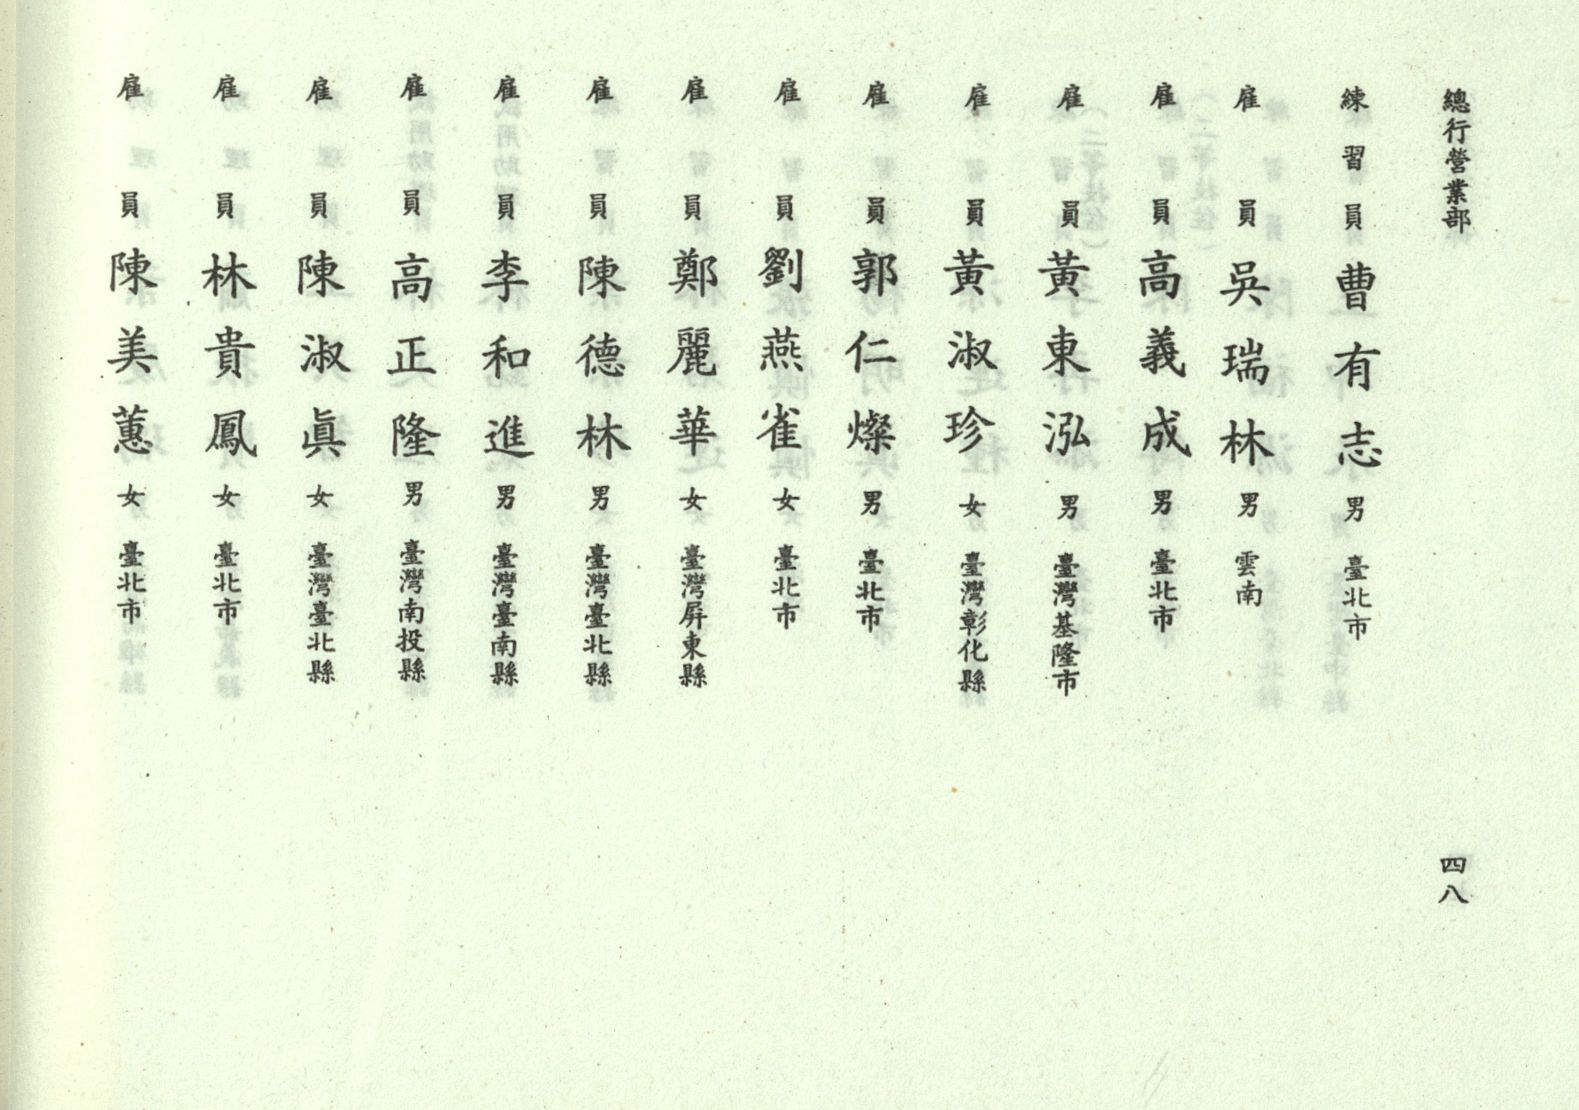 總行營業部
四八
練習員 曹有志 男 臺北市
雇員 吳瑞林 男 雲南
雇員 高義成 男 臺北市
雇員 黃東泓 男 臺灣基隆市
雇員 黃淑珍 女 臺灣彰化縣
雇員 郭仁燦 男 臺北市
雇員 劉燕雀 女 臺北市
雇員 鄭麗華 女 臺灣屏東縣
雇員 陳德林 男 臺灣臺北縣
雇員 李和進 男 臺灣臺南縣
雇員 高正隆 男 臺灣南投縣
雇員 陳淑眞 女 臺灣臺北縣
雇員 林貴鳳 女 臺北市
雇員 陳美蕙 女 臺北市